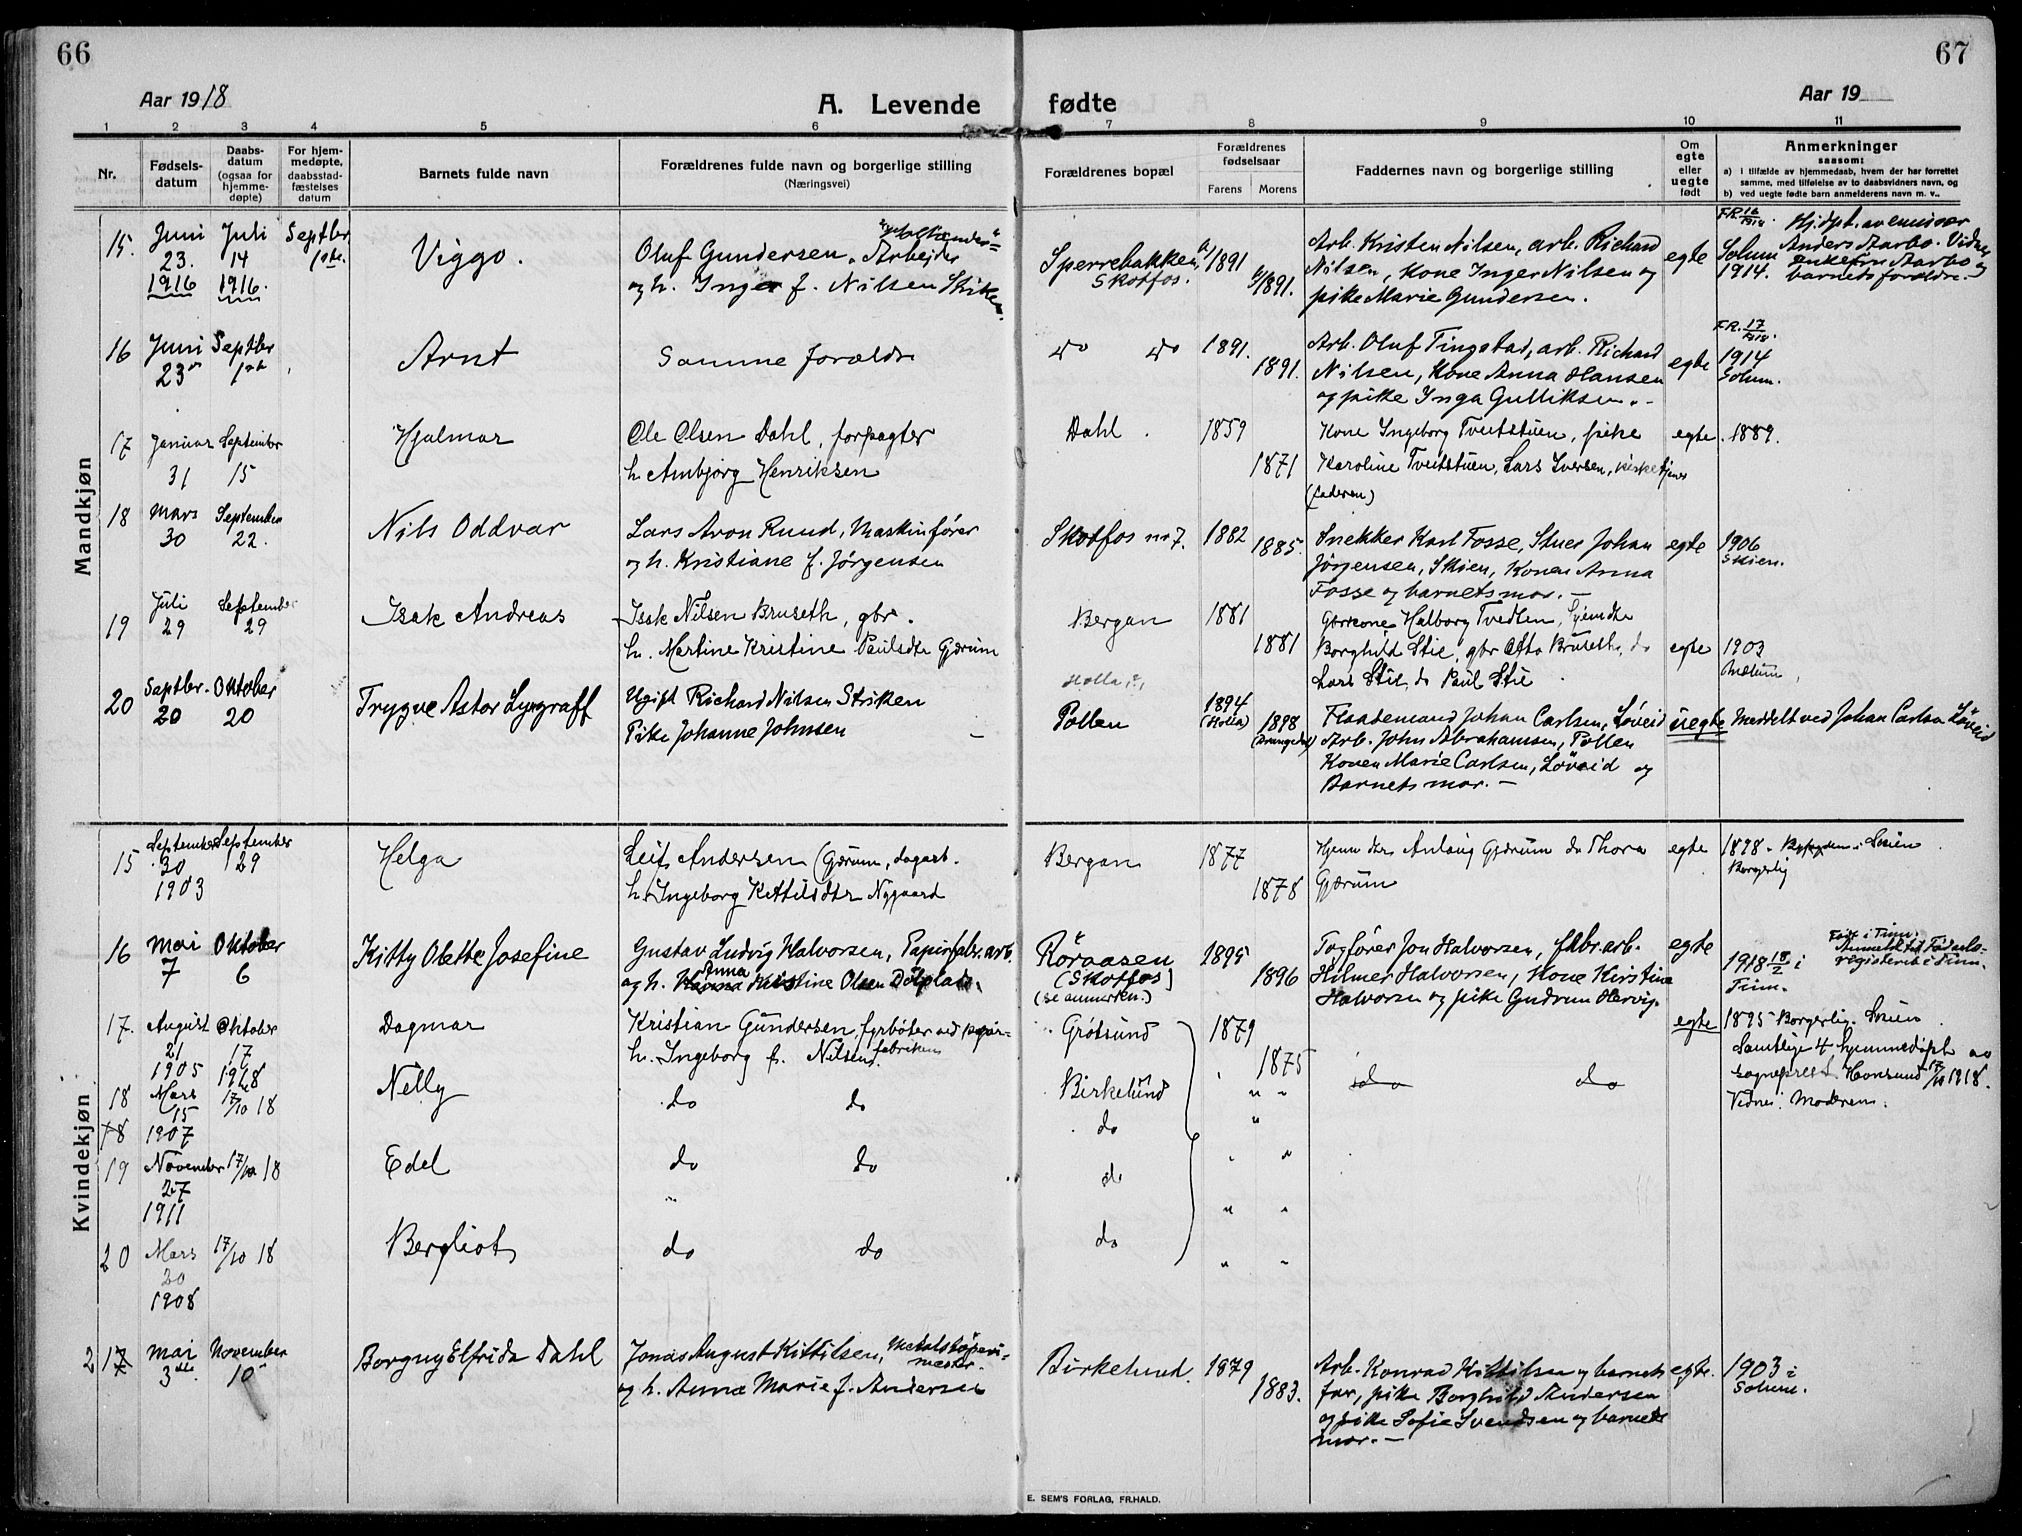 66
67
Aar 1918
A. Levende fødte
Aar 19
1 2 3 4 5 6 7 8 9 10 11
Nr.
Fødselsdatum
Daabsdatum (ogsaa for hjemmedøpte)
For hjemmedøpte, daabsstadfæstelses datum
Barnets fulde navn
Forældrenes fulde navn og borgerlige stilling (Næringsvei)
Forældrenes bopæl
Forældrenes fødselsaar
Farens Morens
Faddernes navn og borgerlige stilling
Om egte eller uegte født
Anmerkninger
saasom:
a) i tilfælde av hjemmedaab, hvem der har forrettet samme, med tilføielse av to daabsvidners navn, og
b) ved uegte fødte barn anmelderens navn m. v..
Mandkjøn
15. Juni 23. 1916 Juli 14 1916. Septbr. 1ste. Viggo. Oluf Gundersen, Arbejder
og h. Inger f. Nilsen
Sperrebakken, Skotfos. 1891 1891. Arb. Kristen Nilsen, arb. Richard
Nilsen, Kone Inger Nilsen og
pike Marie Gundersen.
egte Solum 1914. Hj.dpt. av emissær
Anders Aarbo. Vidner
Aarbo og
barnets forældre.
16 Juni 23 Septbr 1ste Arnt Samme forældre
do do 1891. 1891. Arb. Oluf Tingstad, arb. Richard
Nilsen, Kone Anna Hansen
og pike Inga Gulliksen.
egte 1914 Solum.
17 Januar 31 September 15 Hjalmar Ole Olsen Dahl, forpagter
h. Ambjørg Henriksen
Dahl. 1859 1871 Kone Ingeborg Tveitstuen, pike
Karoline Tveitstuen, Lars Iversen, kirketjener
(faderen)
egte. 1889.
18 Mars 30 September 22. Nils Oddvar Lars Aron Ruud, Maskinfører
og h. Kristiane f. Jørgensen
Skotfos nr 7. 1882 1885. Snekker Karl Fosse, Stuer Johan
Jørgensen, Skien, Konen Anna
Fosse og barnets mor.
egte 1906 Skien.
19 Juli 29 September 29 Isak Andreas Isak Nilsen Bruseth, gbr.
h. Martine Kristine Paulsdtr Gjærum
Bergan 1881 1881 Halborg Tvedten,
Borghild Stie, gbr Otto Bruseth, do
Lars Stie, do Paul Stie
egte 1903 Mælum
20 Septbr. 20 Oktober 20 Trygve Astor Lyngraff Ugift Richard Nilsen Striken
Pike Johanne Johnsen
Holla
Pollen 1894 (Holla) 1898 (Drangedal) Flaademand Johan Carlsen, Løveid
Arb. John Abrahamsen, Pollen
Konen Marie Carlsen, Løveid og
Barnets mor.
uegte Meddelt ved Johan Carlsen Løveid
Kvindekjøn
15 September 30 1903 September 29 Helga Leif Andersen Gjærum, dagarb.
h. Ingeborg Kettilsdtr Nygaard
Bergan 1877 1878 Hjem dtr Anlaug Gjærum do Thora
Gjærum
egte 1898 Skien
Borgerlig
16 Mai 7 Oktober 6 Kitty Olette Josefine Gustav Ludvig Halvorsen, Papirfabr.arb.
og h. Anna Kristine Olsen
Røraasen (Skotfos) (se anmerkn.) 1895 1896 Togfører Jon Halvorsen, fabr.arb.
Hilmer Halvorsen, Kone Kirstine
Halvorsen og pike Gudrun Hervig.
egte 1918 18/2 i Tinn. Født i Tinn.
registeret i Tinn.
17. August 21 1905 Oktober 17 1918 Dagmar Kristian Gundersen, fyrbøter ved papir-
fabriken
h. Ingeborg f. Nilsen
Grøtsund 1879 1875 egte 1895 Borgerlig. Skien
Samtlige 4 hjemmedøpt av
sogneprest Honsund 17/10 1918.
Vidne: Moderen.
18 Mars 15 1907 17/10 18 Nelly do do
Birkelund
do
do do
19 November 27 1911 17/10 18 Edel do do
do
20 Mars 20 1908 17/10 18 Bergliot do do
do
2 17 Mai 3die November 10 Borgny Elfrida Dahl Jonas August Kittilsen,
og h. Anna Marie f. Andersen
Birkelund. 1879 1883. Arb. Konrad Kittilsen og barnets
far, pike Borghild Andersen
og pike Sofie Svendsen og barnets
mor.
egte. 1903 i Solum.
E. SEM'S FORLAG, FR.HALD.